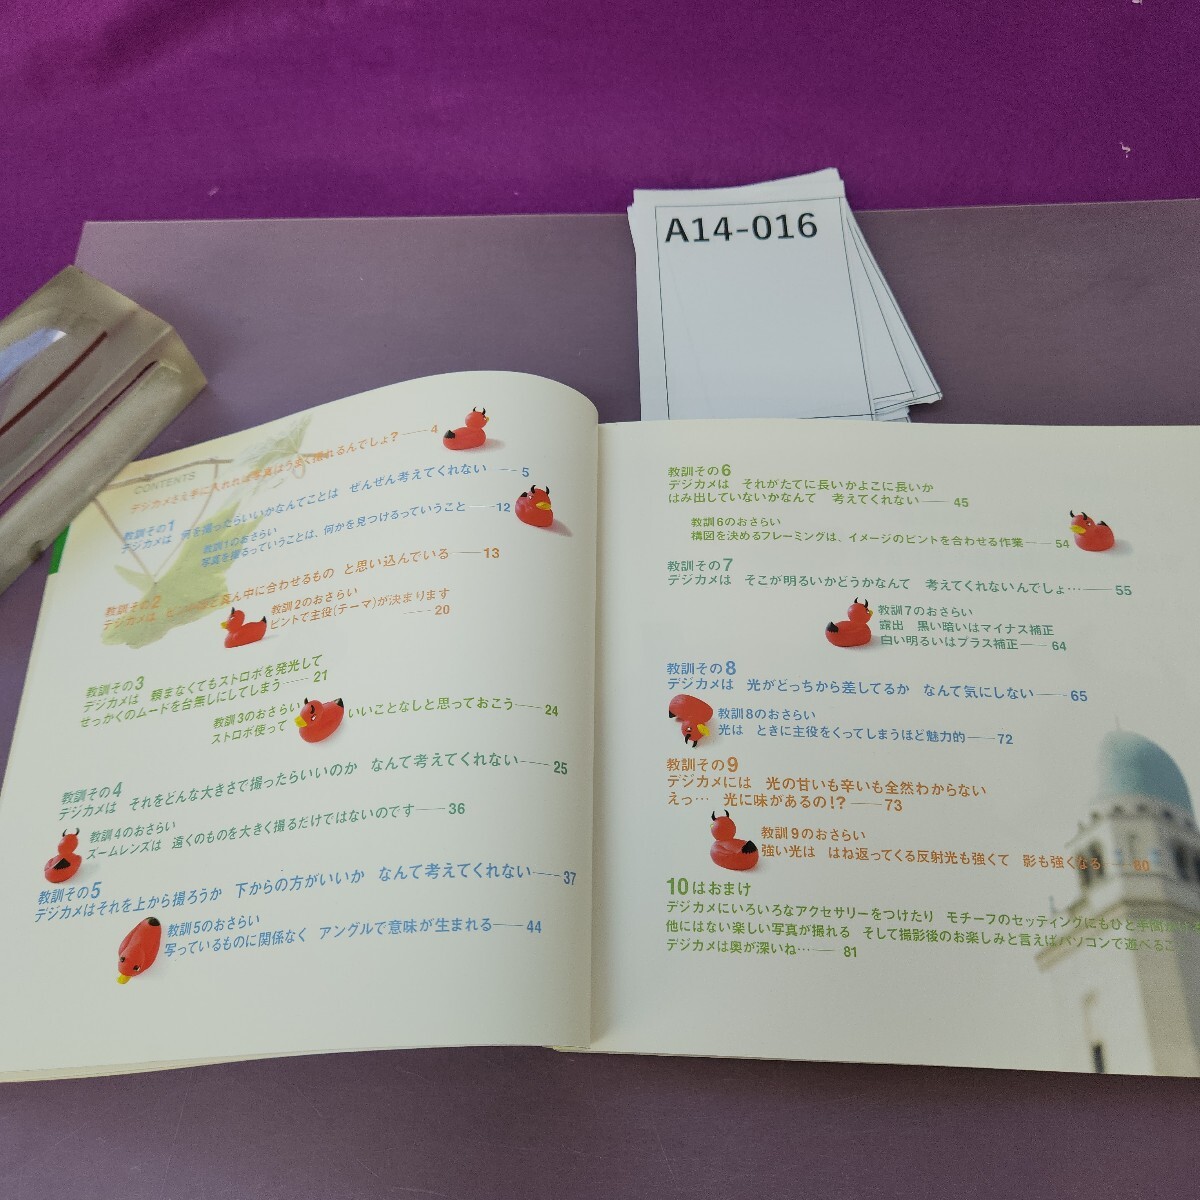 A14-016
CONTENTS
デジカメさえ手に入れれば写真はうまく撮れるんでしょ?——4
教訓その1
デジカメは 何を撮ったらいいかなんてことは ぜんぜん考えてくれない ——5
教訓1のおさらい
写真を撮るっていうことは、何かを見つけるっていうこと——12
教訓その2
デジカメは ピントは真ん中に合わせるもの と思い込んでいる——13
教訓2のおさらい
ピントで主役(テーマ)が決まります
——20
教訓その3
デジカメは 頼まなくてもストロボを発光して
せっかくのムードを台無しにしてしまう……21
教訓3のおさらい
ストロボ使って いいことなしと思っておこう——24
教訓その4
デジカメは それをどんな大きさで撮ったらいいのか なんて考えてくれない——25
教訓4のおさらい
ズームレンズは 遠くのものを大きく撮るだけではないのです——36
教訓その5
デジカメはそれを上から撮ろうか 下からの方がいいか なんて考えてくれない——37
教訓5のおさらい
写っているものに関係なく アングルで意味が生まれる——44
教訓その6
デジカメは それがたてに長いかよこに長いか
はみ出していないかなんて 考えてくれない——45
教訓6のおさらい
構図を決めるフレーミングは、イメージのピントを合わせる作業——54
教訓その7
デジカメは そこが明るいかどうかなんて 考えてくれないんでしょ…——55
教訓7のおさらい
露出 黒い暗いはマイナス補正
白い明るいはプラス補正——64
教訓その8
デジカメは 光がどっちから差してるか なんて気にしない——65
教訓8のおさらい
光は ときに主役をくってしまうほど魅力的——72
教訓その9
デジカメには 光の甘いも辛いも全然わからない
えっ… 光に味があるの!?——73
教訓9のおさらい
強い光は はね返ってくる反射光も強くて 影も強くなる——80
10はおまけ
デジカメにいろいろなアクセサリーをつけたり モチーフのセッティングにもひと手間
他にはない楽しい写真が撮れる そして撮影後のお楽しみと言えばパソコンで遊べるこ
デジカメは奥が深いね…——81